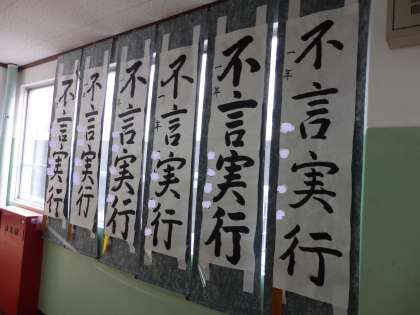 不言実行
一年
不言実行
一年
不言実行
一年
不言実行
年
不言実行
不言実行